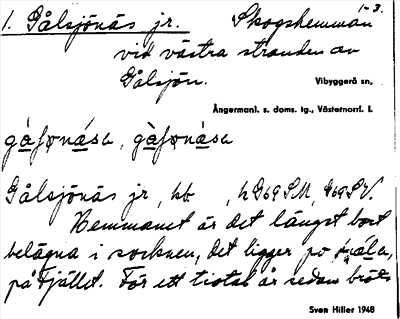 1-3.
1. Gålsjönäs jr. Skogshemman
vid västra stranden av
Gålsjön.
Vibyggerå sn,
Ångermanl. s. doms. tg., Västernorrl. l.
Gålsjönäs jr, hb , h D69 SM, D69 SV.
Hemmanet är det längst bort
belägna i socknen, det ligger po
på Fjället. För ett tiotal år sedan bröts
Sven Hiller 1948